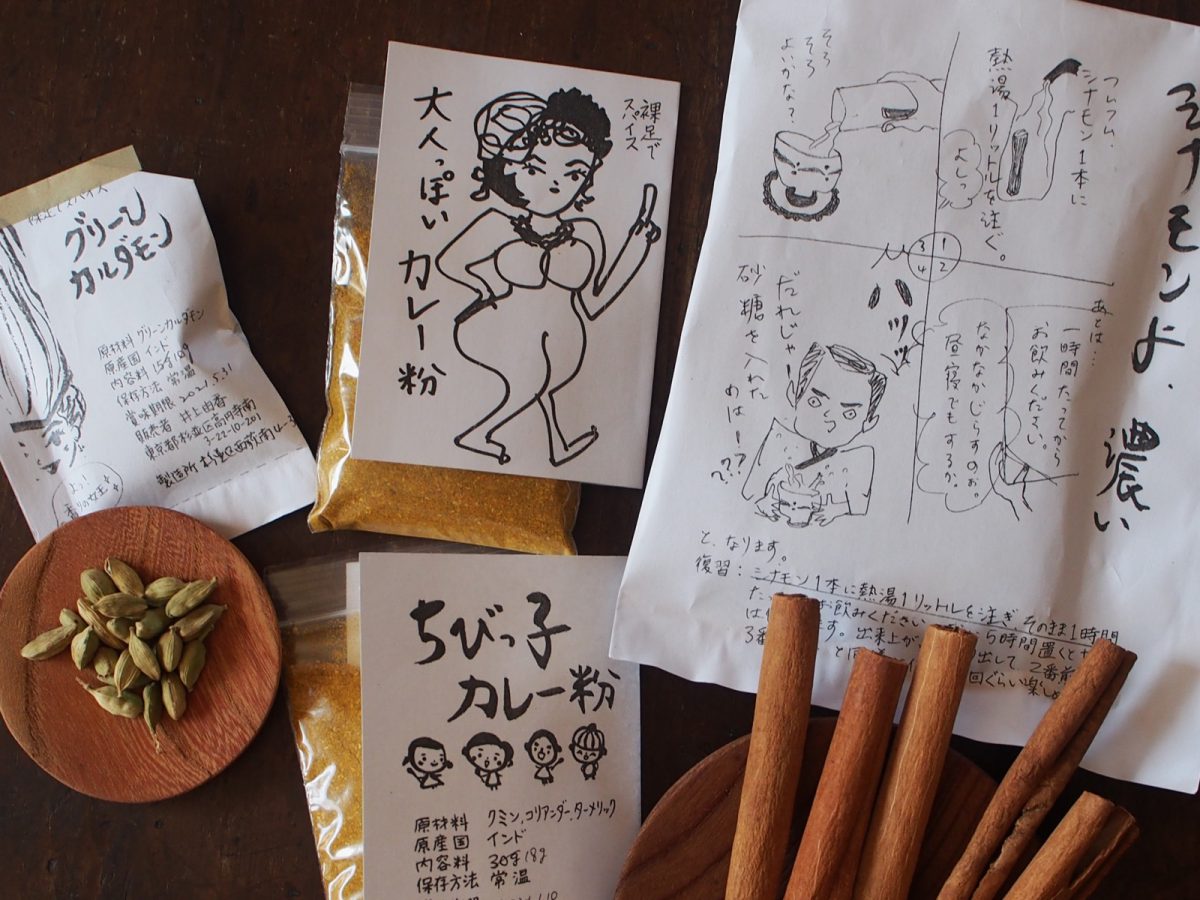 グリーン
カルダモン
原材料 グリーンカルダモン
原産国 インド
内容料 15g 18g
保存方法 常温
賞味期限 2021.5.31
販売者 井上由香
東京都杉並区高円寺南
3-22-10-201
製造所 杉並区西荻南
よっ!
香りの女王
裸足で
スパイス
大人っぽい
カレー粉
ちびっ子
カレー粉
原材料 クミン、コリアンダー、ターメリック
原産国 インド
内容料 30g 18g
保存方法 常温
シナモンよ、濃い
ふむふむ、
シナモン1本に
熱湯1リットルを注ぐ。
よしっ
1
2
3
4
あとは…
一時間たってから
お飲みください。
なかなかじらすのぉ。
昼寝でもするか。
そろ
そろ
よいかな?
ハッッ
だれじゃー
砂糖を入れた
のはー??
と、なります。
復習:シナモン1本に熱湯1リットルを注ぎ そのまま1時間
たっ お飲みください 5時間置くと
は す。出来上が 出して、2番煎
3番 と 回ぐらい楽しめ